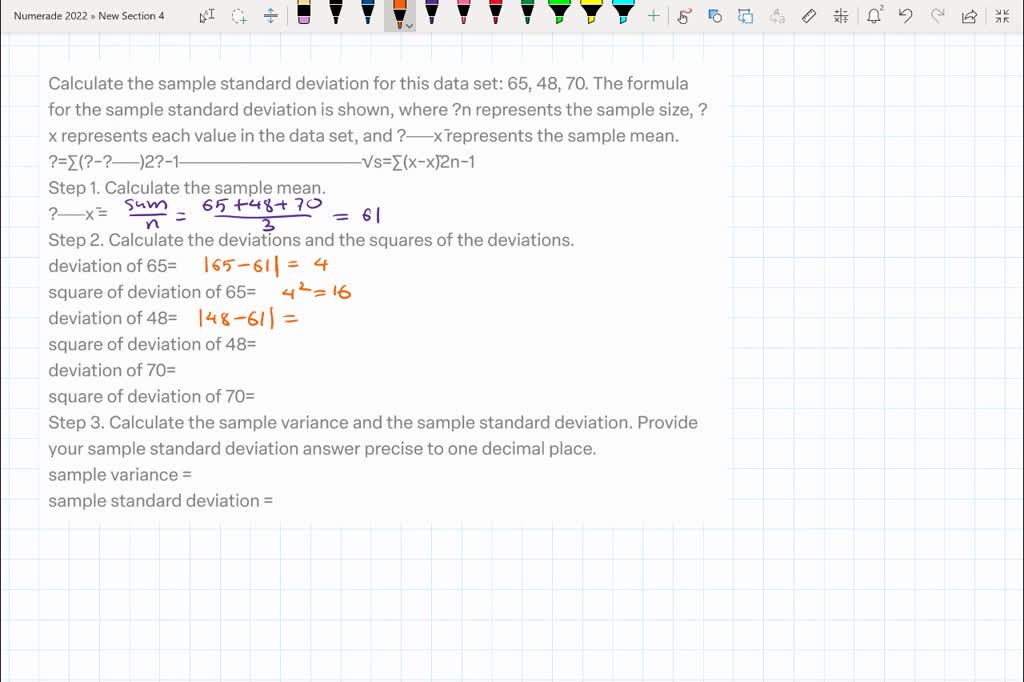 Numerade 2022 » New Section 4
2
Calculate the sample standard deviation for this data set: 65, 48, 70. The formula
for the sample standard deviation is shown, where ?n represents the sample size, ?
x represents each value in the data set, and ?──x̄ represents the sample mean.
?=∑(?−?──)2?−1──────────────√s=∑(x−x̄)2n−1
Step 1. Calculate the sample mean.
?──x̄ = sum/n = 65+48+70/3 = 61
Step 2. Calculate the deviations and the squares of the deviations.
deviation of 65= |65-61| = 4
square of deviation of 65= 4² = 16
deviation of 48= |48-61| =
square of deviation of 48=
deviation of 70=
square of deviation of 70=
Step 3. Calculate the sample variance and the sample standard deviation. Provide
your sample standard deviation answer precise to one decimal place.
sample variance =
sample standard deviation =